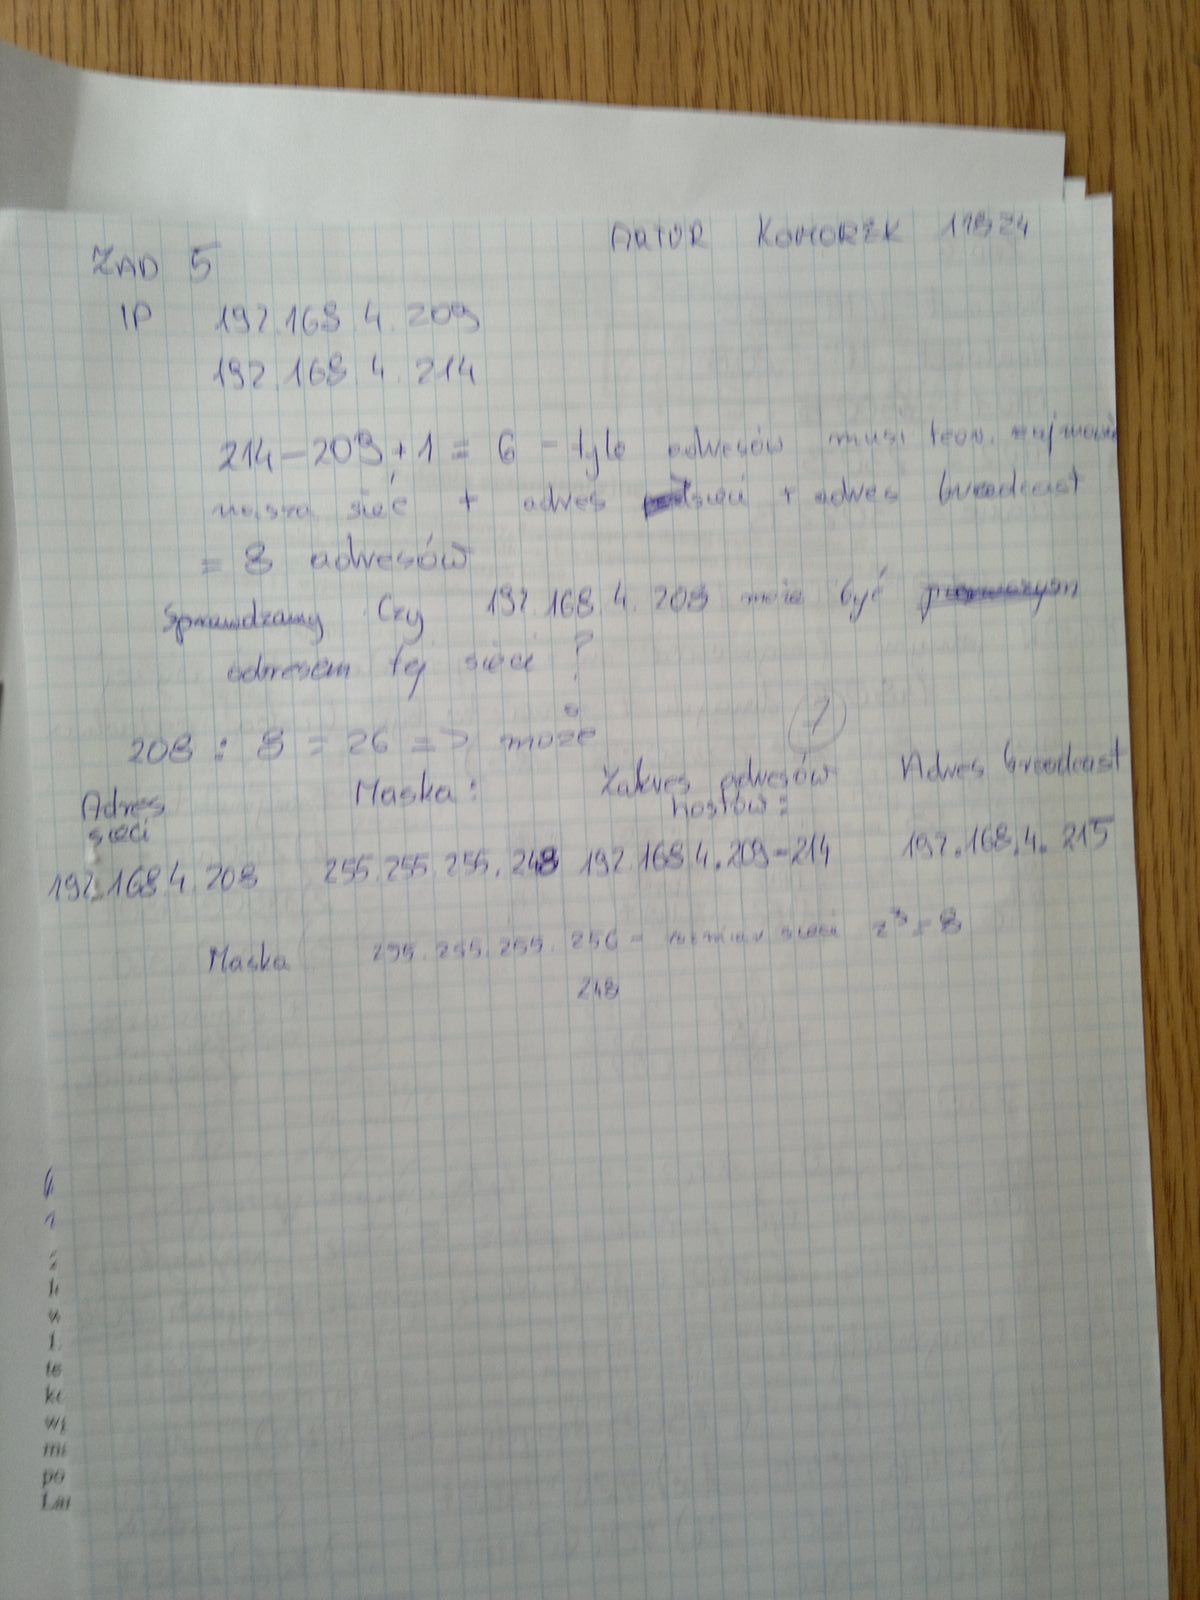 ARTUR KOMOREK 11824
ZAD 5
IP 192.168 4.209
192.168 4.214
214-209+1 = 6 - tyle adresów musi teor. zajmować
nasza sieć + adres sieci + adres broadcast
= 8 adresów
Sprawdzamy Czy 192.168.4.208 może być pierwszym
adresem tej sieci ?
208 : 8 = 26 => może
1
Adres sieci Maska: Zakres adresów hostów: Adres broadcast
192.168.4.208 255.255.255.248 192.168.4.209-214 192.168.4.215
Maska 255.255.255.256 - rozmiar sieci 2³=8
248
(
1
h
w
1.
te
kc
wy
mi
po